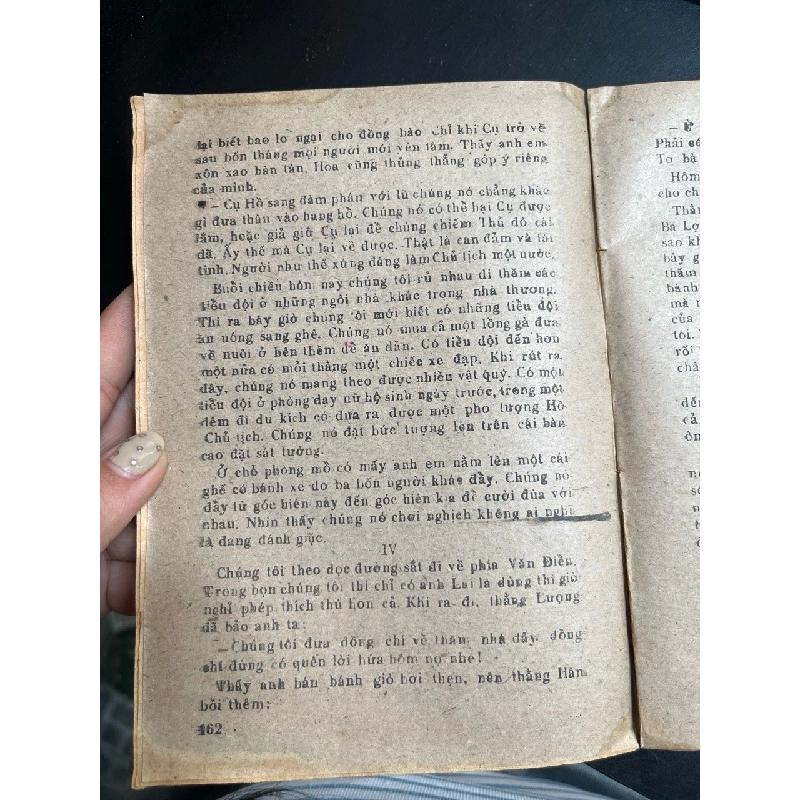 lại biết bao lo ngại cho đồng bào Chỉ khi Cụ trở về
sau bốn tháng mọi người mới yên tâm. Thấy anh em
xôn xao bàn tán, Hoa cũng thủng thẳng góp ý riêng
của mình.
– Cụ Hồ sang đàm phán với lũ chúng nó chẳng khác
gì đưa thân vào hang hồ. Chúng nó có thể hại Cụ được
lắm, hoặc giả giữ Cụ lại để chúng chiếm Thủ đô cái
đã. Ấy thế mà Cụ lại về được. Thật là can đảm và tài
tình. Người như thế xứng đáng làm Chủ tịch một nước.
Buổi chiều hôm nay chúng tôi rủ nhau đi thăm các
tiểu đội ở những ngôi nhà khác trong nhà thương.
Thì ra bây giờ chúng tôi mới biết có những tiểu đội
ăn uống sang ghê. Chúng nó mua cả một lồng gà đưa
về nuôi ở bên thềm để ăn dần. Có tiểu đội đến hơn
một nửa có mỗi thằng một chiếc xe đạp. Khi rút ra
đây, chúng nó mang theo được nhiều vật quý. Có một
tiểu đội ở phòng dạy nữ hộ sinh ngày trước, trong một
đêm đi du kích có đưa ra được một pho tượng Hồ
Chủ tịch. Chúng nó đặt bức tượng lên trên cái bàn
cao đặt sát tường.
Ở chỗ phòng mổ có mấy anh em nằm lên một cái
ghế có bánh xe do ba bốn người khác đẩy. Chúng nó
đẩy từ góc hiên này đến góc hiên kia để cười đùa với
nhau. Nhìn thấy chúng nó chơi nghịch không ai nghĩ
là đang đánh giặc.
IV
Chúng tôi theo dọc đường sắt đi về phía Văn Điển.
Trong bọn chúng tôi thì chỉ có anh Lai là dùng thì giờ
nghỉ phép thích thú hơn cả. Khi ra đi, thằng Lượng
đã bảo anh ta:
– Chúng tôi đưa đồng chí về thăm nhà đấy, đồng
chí đừng có quên lời hứa hôm nọ nhé!
Thấy anh bán bánh giò hơi thẹn, nên thằng Hân
bồi thêm:
162
– Ở
Phải
To bà
Hôm
cho ch
Thằn
Ba Lợ
sao kh
bây g
thăm
bánh
mà
của
tôi.
rồi
chả
đến
cả
ôn